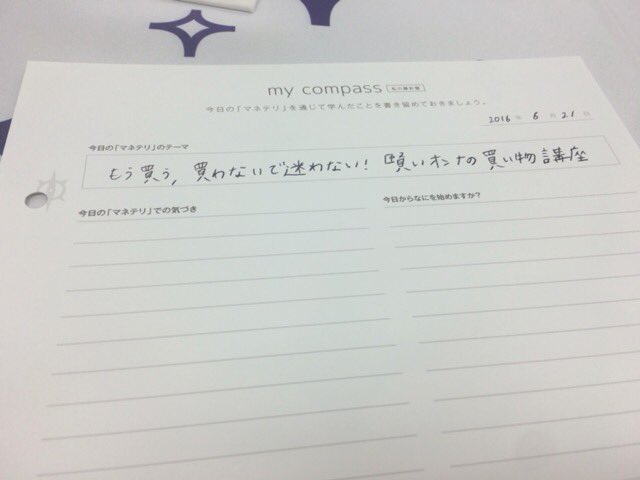 my compass 私の羅針盤
今日の「マネテリ」を通じて学んだことを書き留めておきましょう。
2016 年 6 月 21 日
今日の「マネテリ」のテーマ
もう買う,買わないで迷わない! 賢いオンナの買い物講座
今日の「マネテリ」での気づき
今日からなにを始めますか?